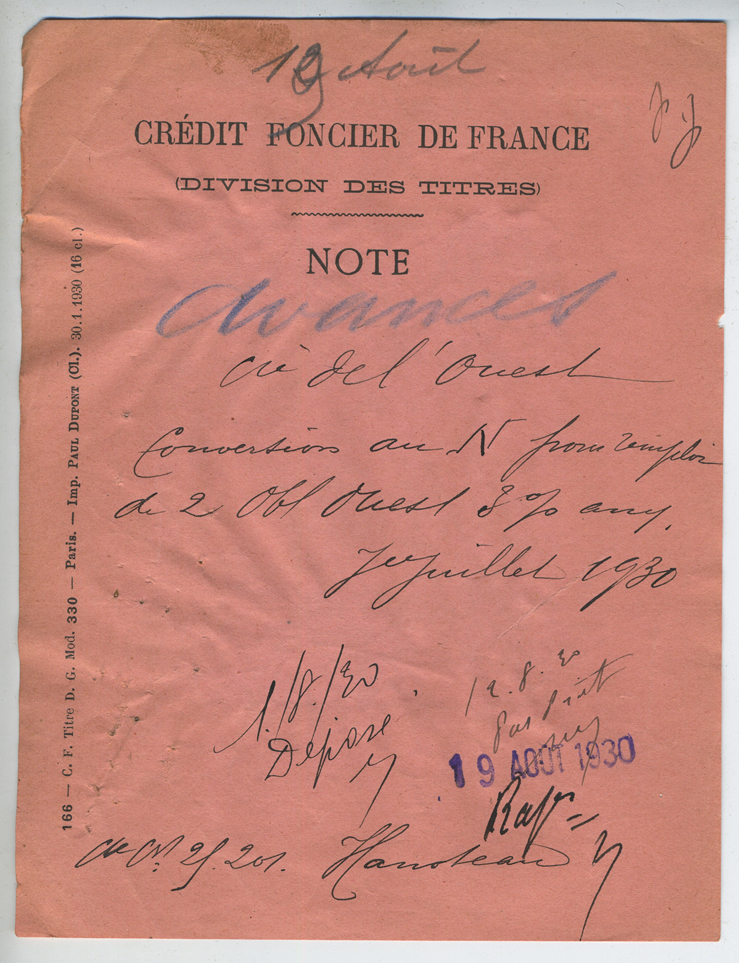 Août
CRÉDIT FONCIER DE FRANCE
(DIVISION DES TITRES)
NOTE
avances
Cie de l'Ouest
Conversion au N pour remploi
de 2 Obl Ouest 3% anc.
Jce Juillet 1930
1/8/30
Déposé
12.8.30
pas prêt
19 AOUT 1930
166 — C. F. Titre D. G. Mod. 330 — Paris. — Imp. PAUL DUPONT (Cl.). 30.1.1930 (16 cl.)